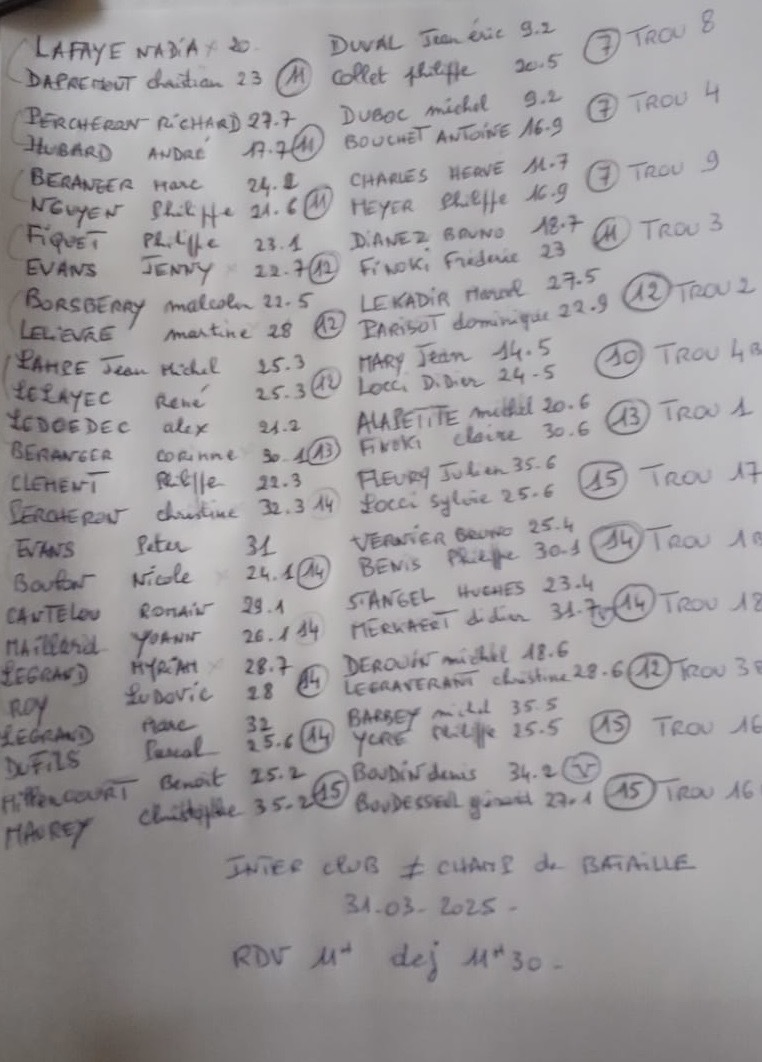 LAFAYE NADIA x 20. DUVAL Jean éric 9.2
DAPREMONT christian 23 (11) Collet philippe 20.5 (7) TROU 8
PERCHERON RICHARD 27.7 DUBOC michel 9.2
HUBARD ANDRÉ 17.7 (11) BOUCHET ANTOINE 16.9 (7) TROU 4
BERANGER Marc 24.2 CHARLES HERVE 11.7
NGUYEN Philippe 21.6 (11) MEYER Philippe 16.9 (7) TROU 9
FIQUET Philippe 23.1 DIANEZ BRUNO 18.7
EVANS JENNY x 22.7 (12) FINOKI Frédéric 23 (11) TROU 3
BORSBERRY malcolm 22.5 LEKADIR Marcel 27.5
LELIEVRE martine 28 (12) PARISOT dominique 22.9 (12) TROU 2
LAHRE Jean Michel 25.3 MARY Jean 14.5
LELAYEC René 25.3 (12) Locci Didier 24.5 (10) TROU 4B
LEDOEDEC alex 21.2 ALAPETITE michel 20.6
BERANGER corinne 30.1 (13) Finoki claire 30.6 (13) TROU 1
CLEMENT Philippe 22.3 FLEURY Julien 35.6
PERCHERON christine 32.3 14 Locci Sylvie 25.6 (15) TROU 17
EVANS Peter 31 VERNIER BRUNO 25.4
Bouton Nicole x 24.1 (14) BENIS Philippe 30.1 (14) TROU
CANTELOU ROMAIN 29.1 S.ANGEL HUGHES 23.4
MAILLARD YOANN 26.1 14 MERKAERT didier 31.7 (14) TROU 18
LEGRAND MYRIAM x 28.7 DEROUIN michel 18.6
ROY Ludovic 28 (14) LEGRAVERANT christine 28.6 (12) TROU
LEGRAND Marc 32 BARBEY michel 35.5
DUFILS Pascal 25.6 (14) YCRE Philippe 25.5 (15) TROU 16
HITTENCOURT Benoit 25.2 BOUDIN denis 34.2 (V)
MAUREY Christophe 35.2 (15) BOUDESSEUL gérard 27.1 (15) TROU 16
INTER CLUB ≠ CHAMP de BATAILLE
31-03-2025-
RDV 11H dej 11H30-